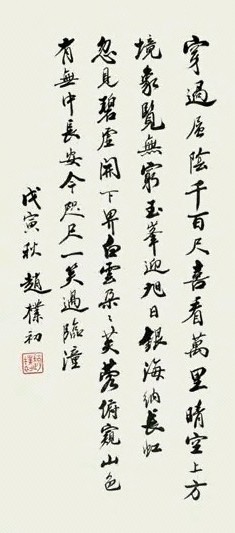 穿過層陰千百尺喜看萬里晴空上方
境象覽無窮玉峯迎旭日銀海納長虹
忽見碧虛開下界白雲朵〻芙蓉俯窺山色
有無中長安今咫尺一笑過臨潼
戊寅秋 趙樸初